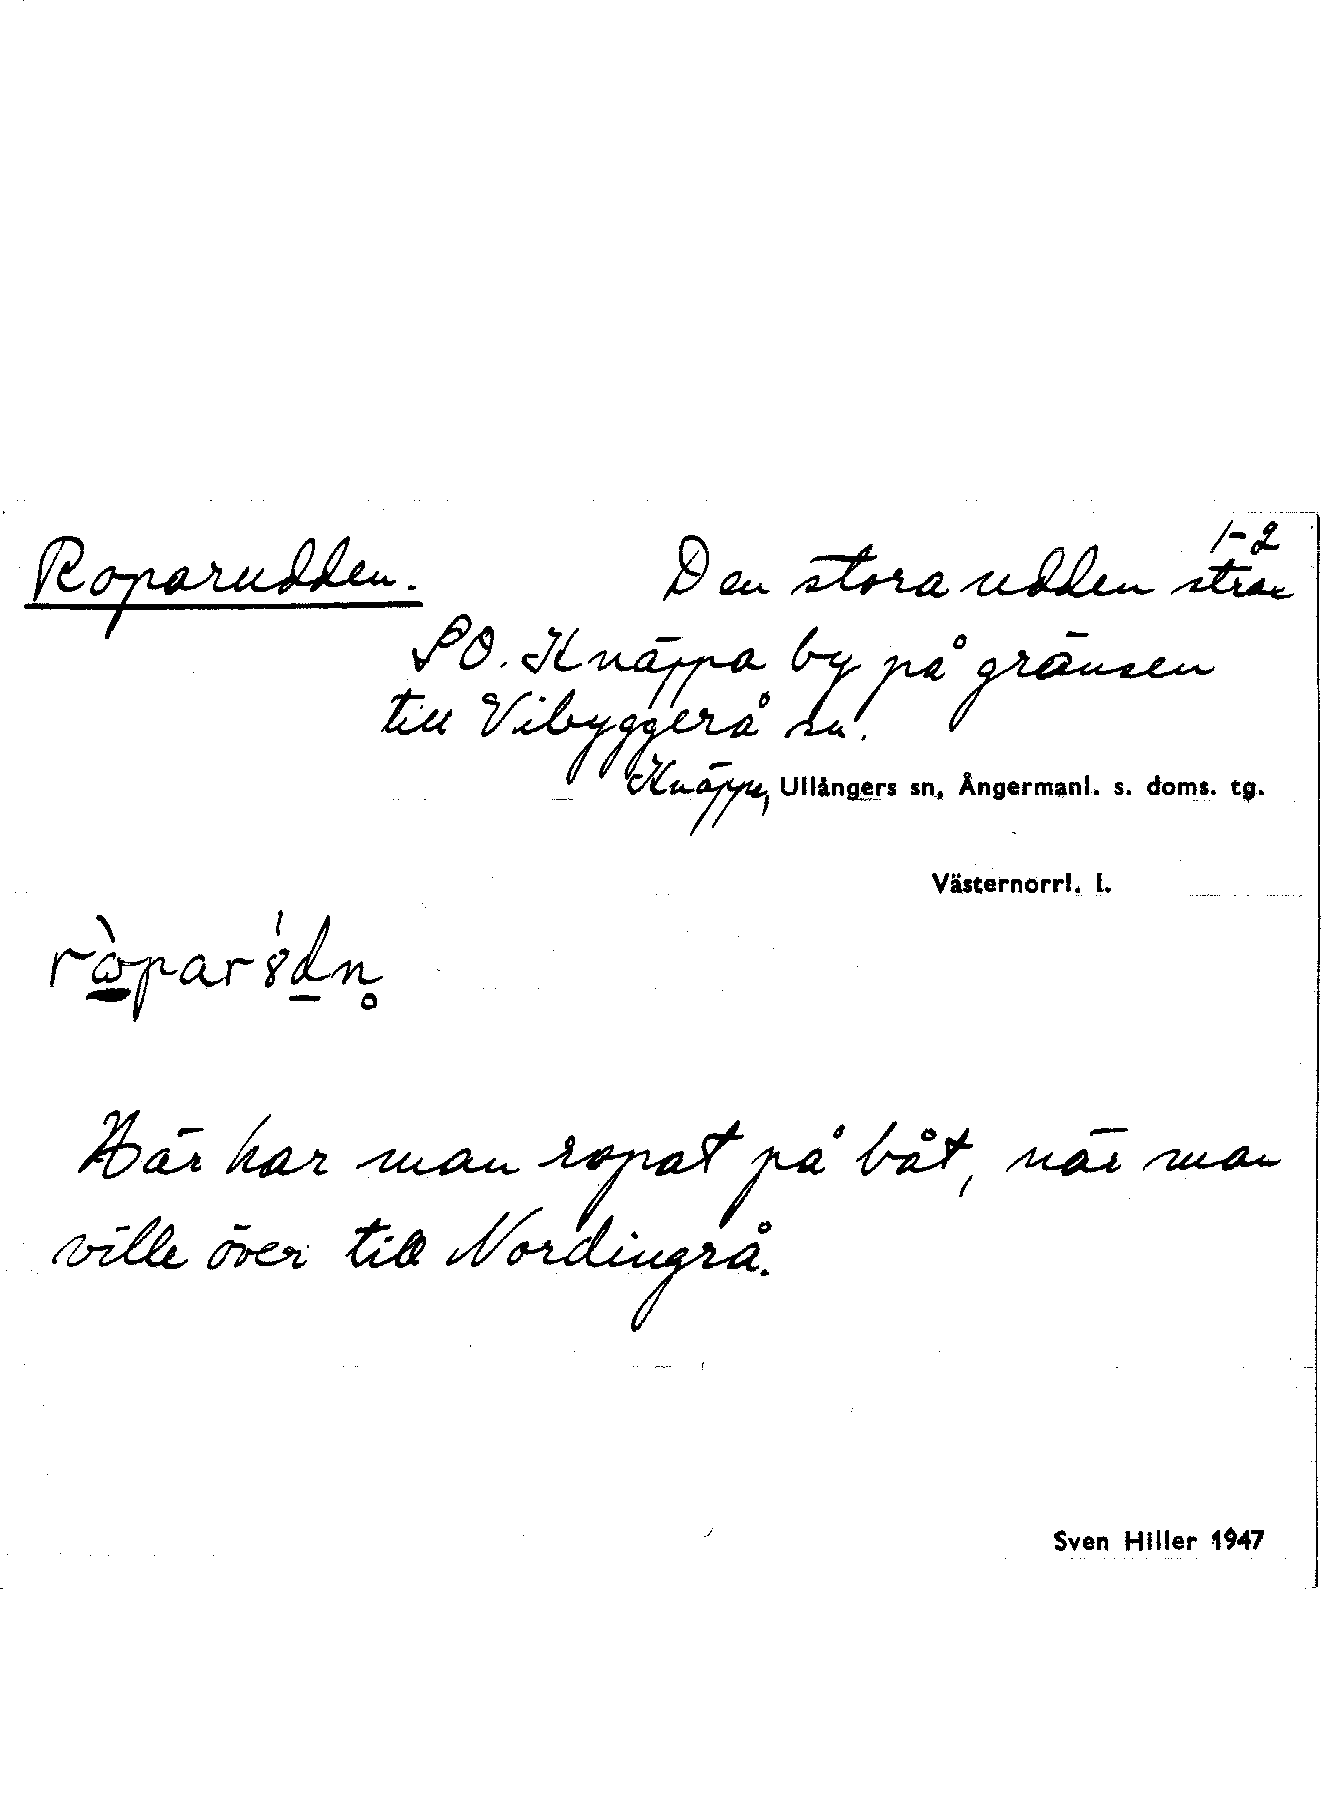 1-2
Roparudden. Den stora udden strax
SO. Knäppa by på gränsen
till Vibyggerå sn.
Knäppa, Ullångers sn, Ångermanl. s. doms. tg.
Västernorrl. l.
Här har man ropat på båt, när man
ville över till Nordingrå.
Sven Hiller 1947